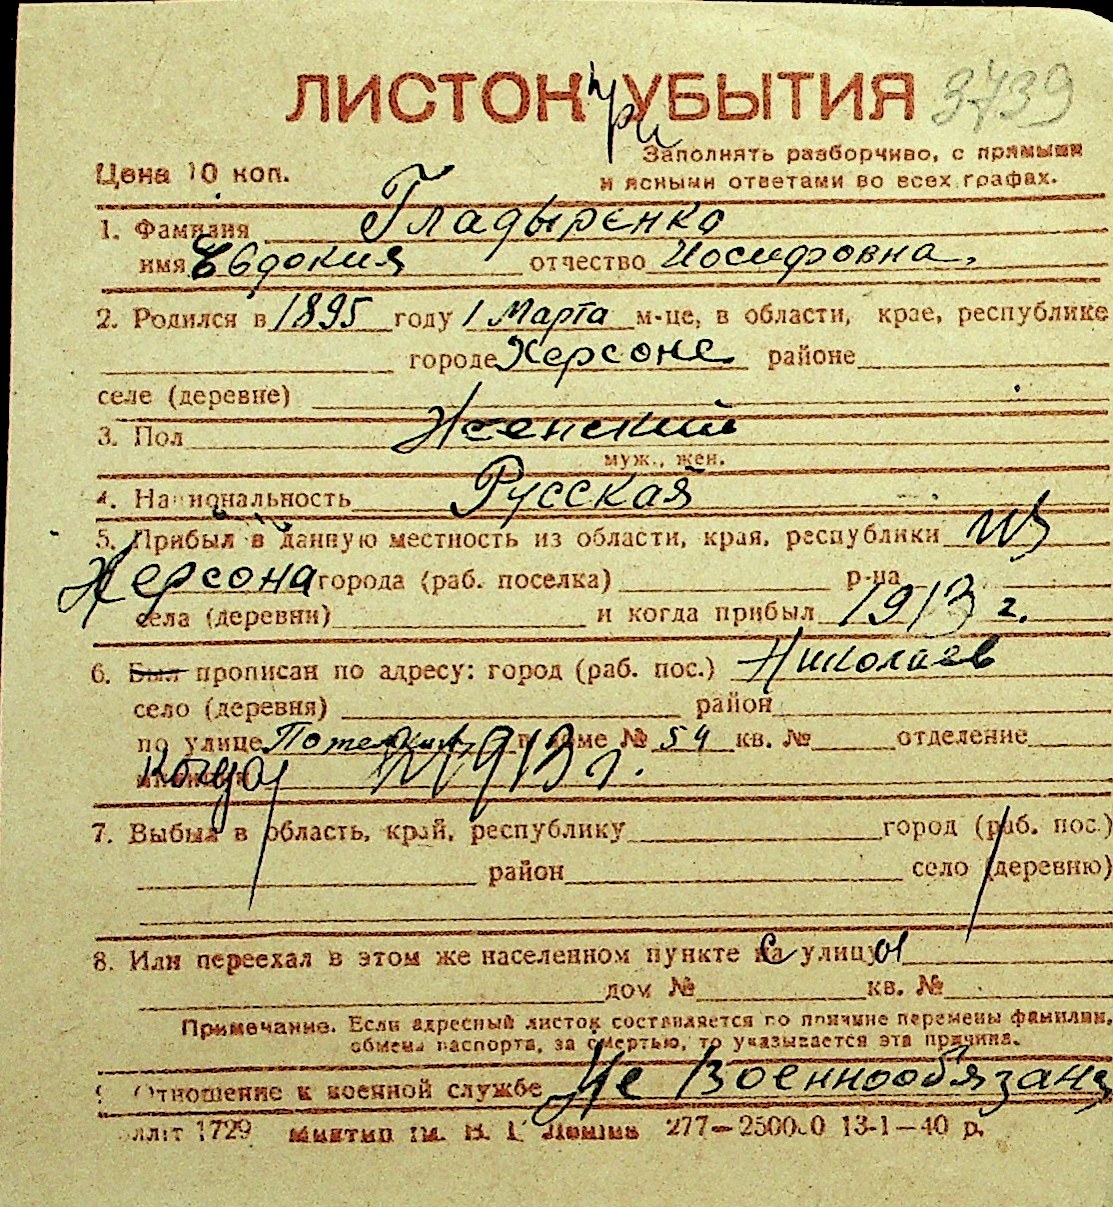 ЛИСТОК при УБЫТИЯ 3439
Цена 10 коп.
Заполнять разборчиво, с прямыми
и ясными ответами во всех графах.
1. Фамилия Гладыренко
имя Евдокия отчество Иосифовна,
2. Родился в 1895 году 1 Марта м-це, в области, крае, республике
городе Херсоне районе
селе (деревне)
3. Пол Женский
муж., жен.
4. Национальность Русская
5. Прибыл в данную местность из области, края, республики из
Херсона города (раб. поселка) р-на
села (деревни) и когда прибыл 1913 г.
6. Был прописан по адресу: город (раб. пос.) Николаев
село (деревня) район
по улице доме № 54 кв. № отделение
когда 1913 г.
7. Выбыл в область, край, республику город (раб. пос.)
район село (деревню)
8. Или переехал в этом же населенном пункте с улицы
дом № кв. №
Примечание. Если адресный листок составляется по причине перемены фамилии,
обмена паспорта, за смертью, то указывается эта причина.
9. Отношение к военной службе Не военнообязана
1729 277—25000 13-1—40 р.